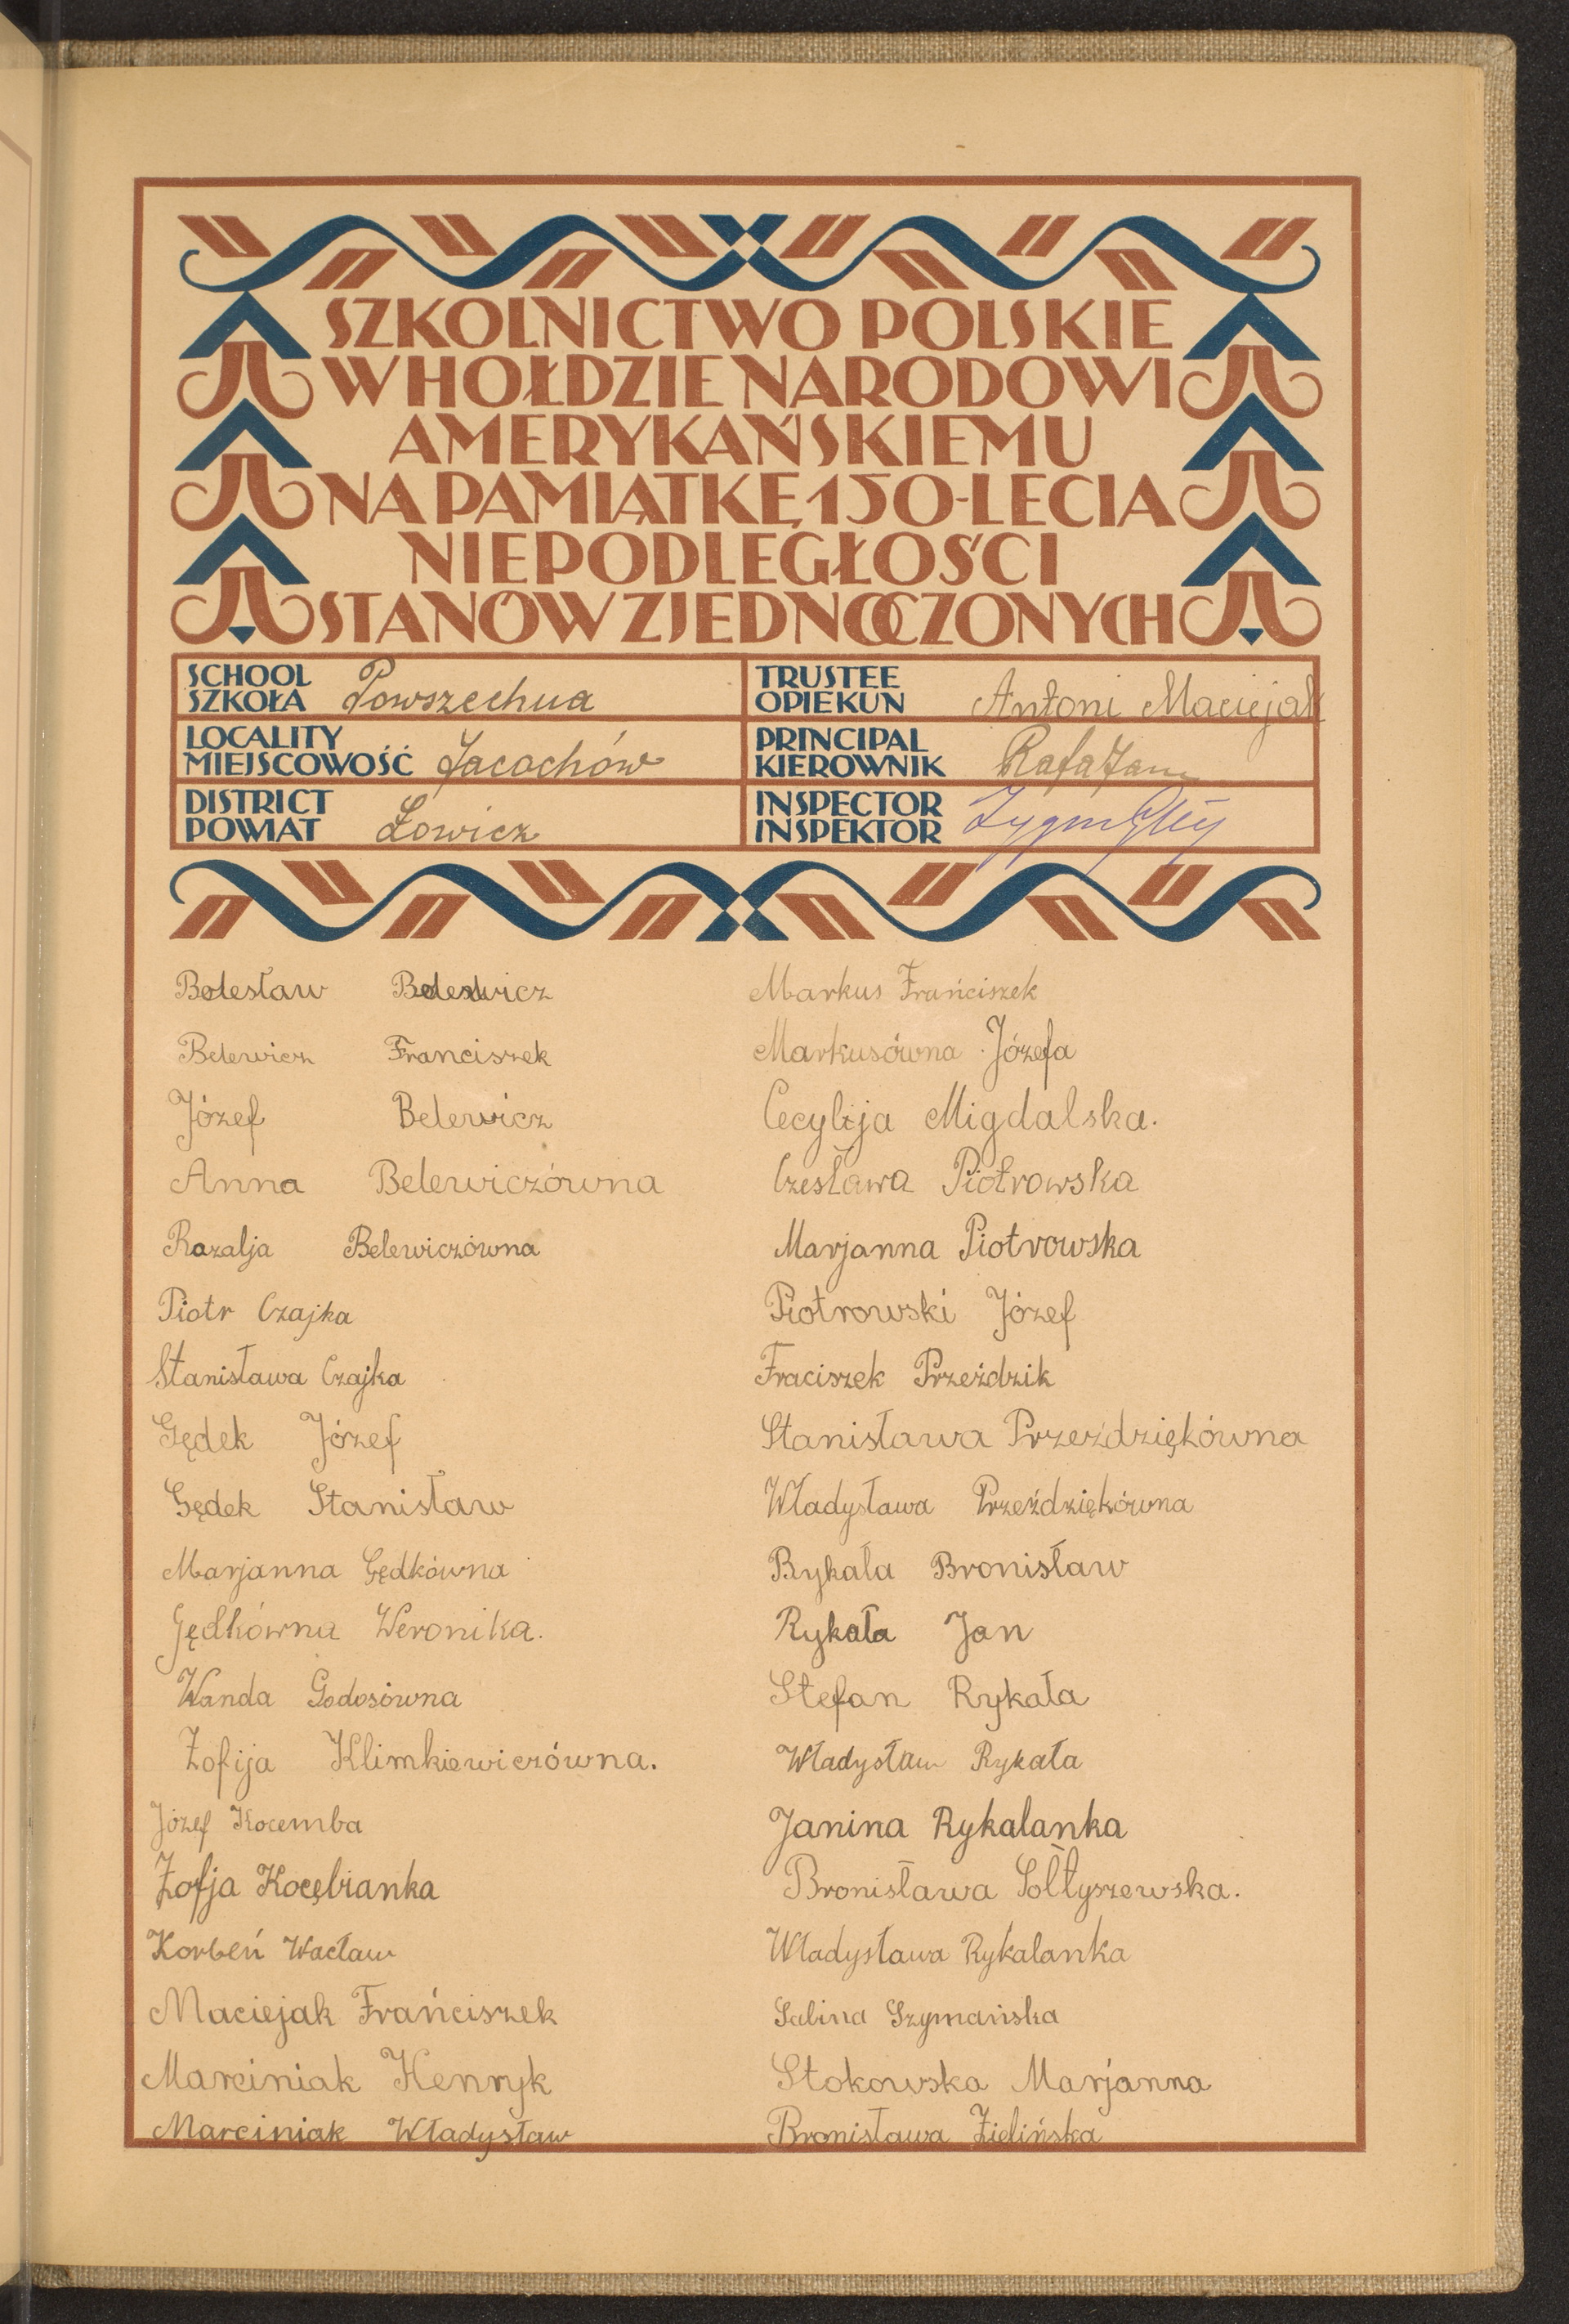 SZKOLNICTWO POLSKIE
W HOŁDZIE NARODOWI
AMERYKAŃSKIEMU
NA PAMIĄTKĘ 150-LECIA
NIEPODLEGŁOŚCI
STANÓW ZJEDNOCZONYCH
SCHOOL
SZKOŁA Powszechna
TRUSTEE
OPIEKUN Antoni Maciejak
LOCALITY
MIEJSCOWOŚĆ Jacochów
PRINCIPAL
KIEROWNIK
DISTRICT
POWIAT Łowicz
INSPECTOR
INSPEKTOR
Bolesław
Belewicz Franciszek
Józef Belewicz
Anna Belewiczówna
Razalja Belewiczówna
Piotr Czajka
Stanisława Czajka
Gędek Józef
Gędek Stanisław
Marjanna Gędkówna
Gędkówna Weronika.
Wanda Godosówna
Zofija Klimkiewiczówna.
Józef Kocemba
Zofja Kocębianka
Korbeń Wacław
Maciejak Frańciszek
Marciniak Henryk
Marciniak Władysław
Markus Frańciszek
Markusówna Józefa
Cecylija Migdalska.
Czesława Piotrowska
Marjanna Piotrowska
Piotrowski Józef
Fraciszek Przeździk
Stanisława Przeździękówna
Władysława Przeździękówna
Rykała Bronisław
Rykała Jan
Stefan Rykała
Władysław Rykała
Janina Rykalanka
Bronisława Sołtyszewska.
Władysława Rykalanka
Sabina Szymańska
Stokowska Marjanna
Bronisława Zielińska